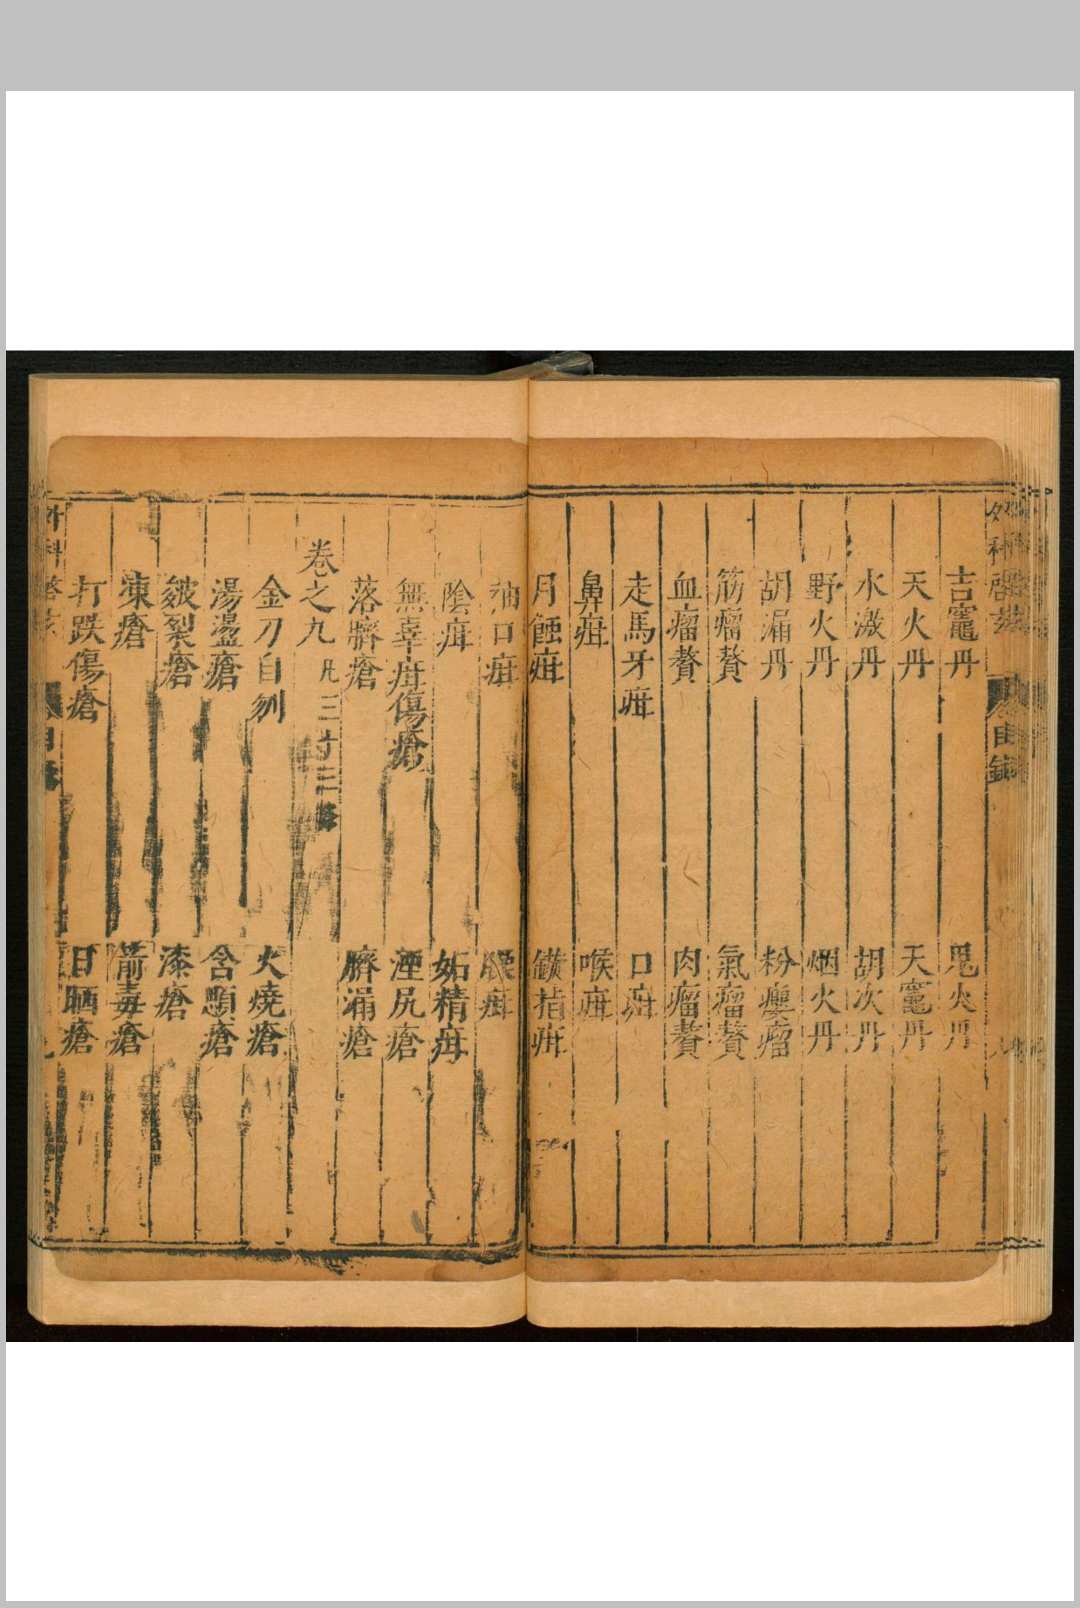 外科啓玄 目錄
吉竈丹 鬼火丹
天火丹 天竈丹
水激丹 胡次丹
野火丹 烟火丹
胡漏丹 粉癭瘤
筋瘤贅 氣瘤贅
血瘤贅 肉瘤贅
走馬牙疳 口疳
鼻疳 喉疳
月蝕疳 鑚指疳
袖口疳 臁疳
陰疳 妬精疳
無辜疳傷瘡 湮尻瘡
落臍瘡 臍漏瘡
卷之九 凡三十三條
金刀自刎 火燒瘡
湯盪瘡 含顋瘡
皴裂瘡 漆瘡
凍瘡 箭毒瘡
打跌傷瘡 日晒瘡
外科啓玄 目錄